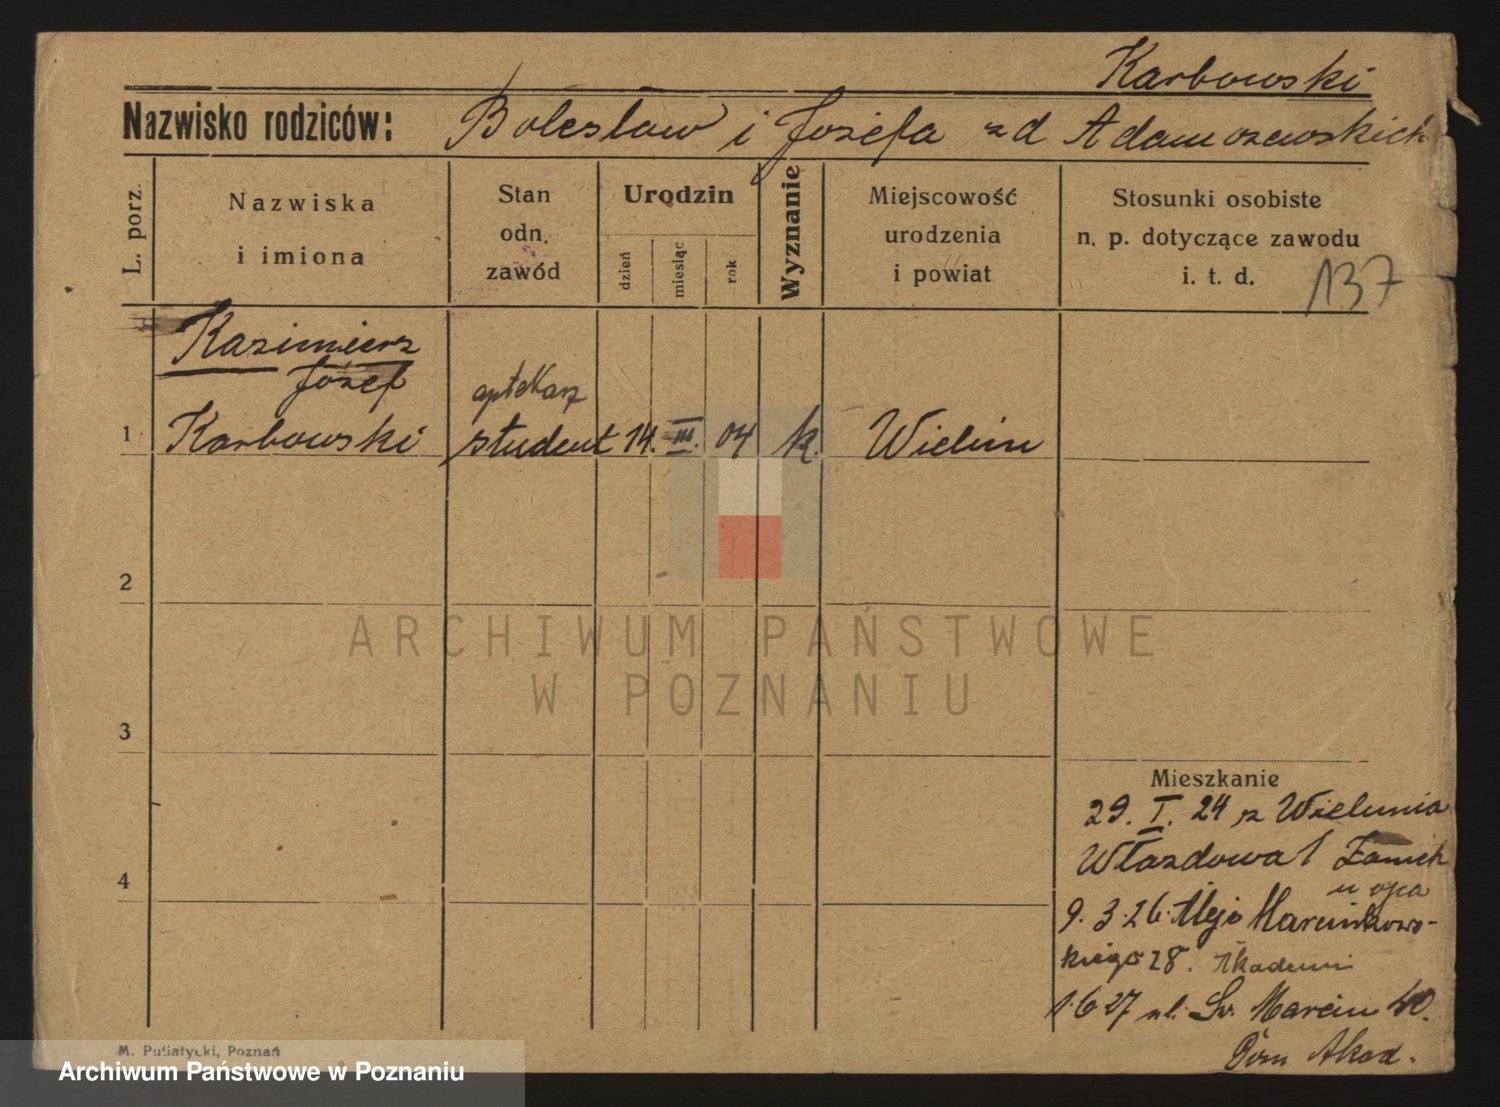 Karbowski
Nazwisko rodziców: Bolesław i Józefa z d Adamczewskich
L. porz.
Nazwiska
i imiona
Stan
odn.
zawód
Urodzin
dzień
miesiąc
rok
Wyznanie
Miejscowość
urodzenia
i powiat
Stosunki osobiste
n. p. dotyczące zawodu
i. t. d.
137
Kazimierz
Józef
aptekarz
1 Karbowski student 14. III. 04 k. Wieluń
2
3
4
ARCHIWUM PAŃSTWOWE
W POZNANIU
Mieszkanie
29. I. 24 z Wielunia
Wjazdowa 1 Zamek
u ojca
9. 3. 26. Aleje Marcinkows-
kiego 28. Akademi
1. 6 27 ul. Św. Marcin 40.
Dom Akad.
M. Putiatycki, Poznań
Archiwum Państwowe w Poznaniu